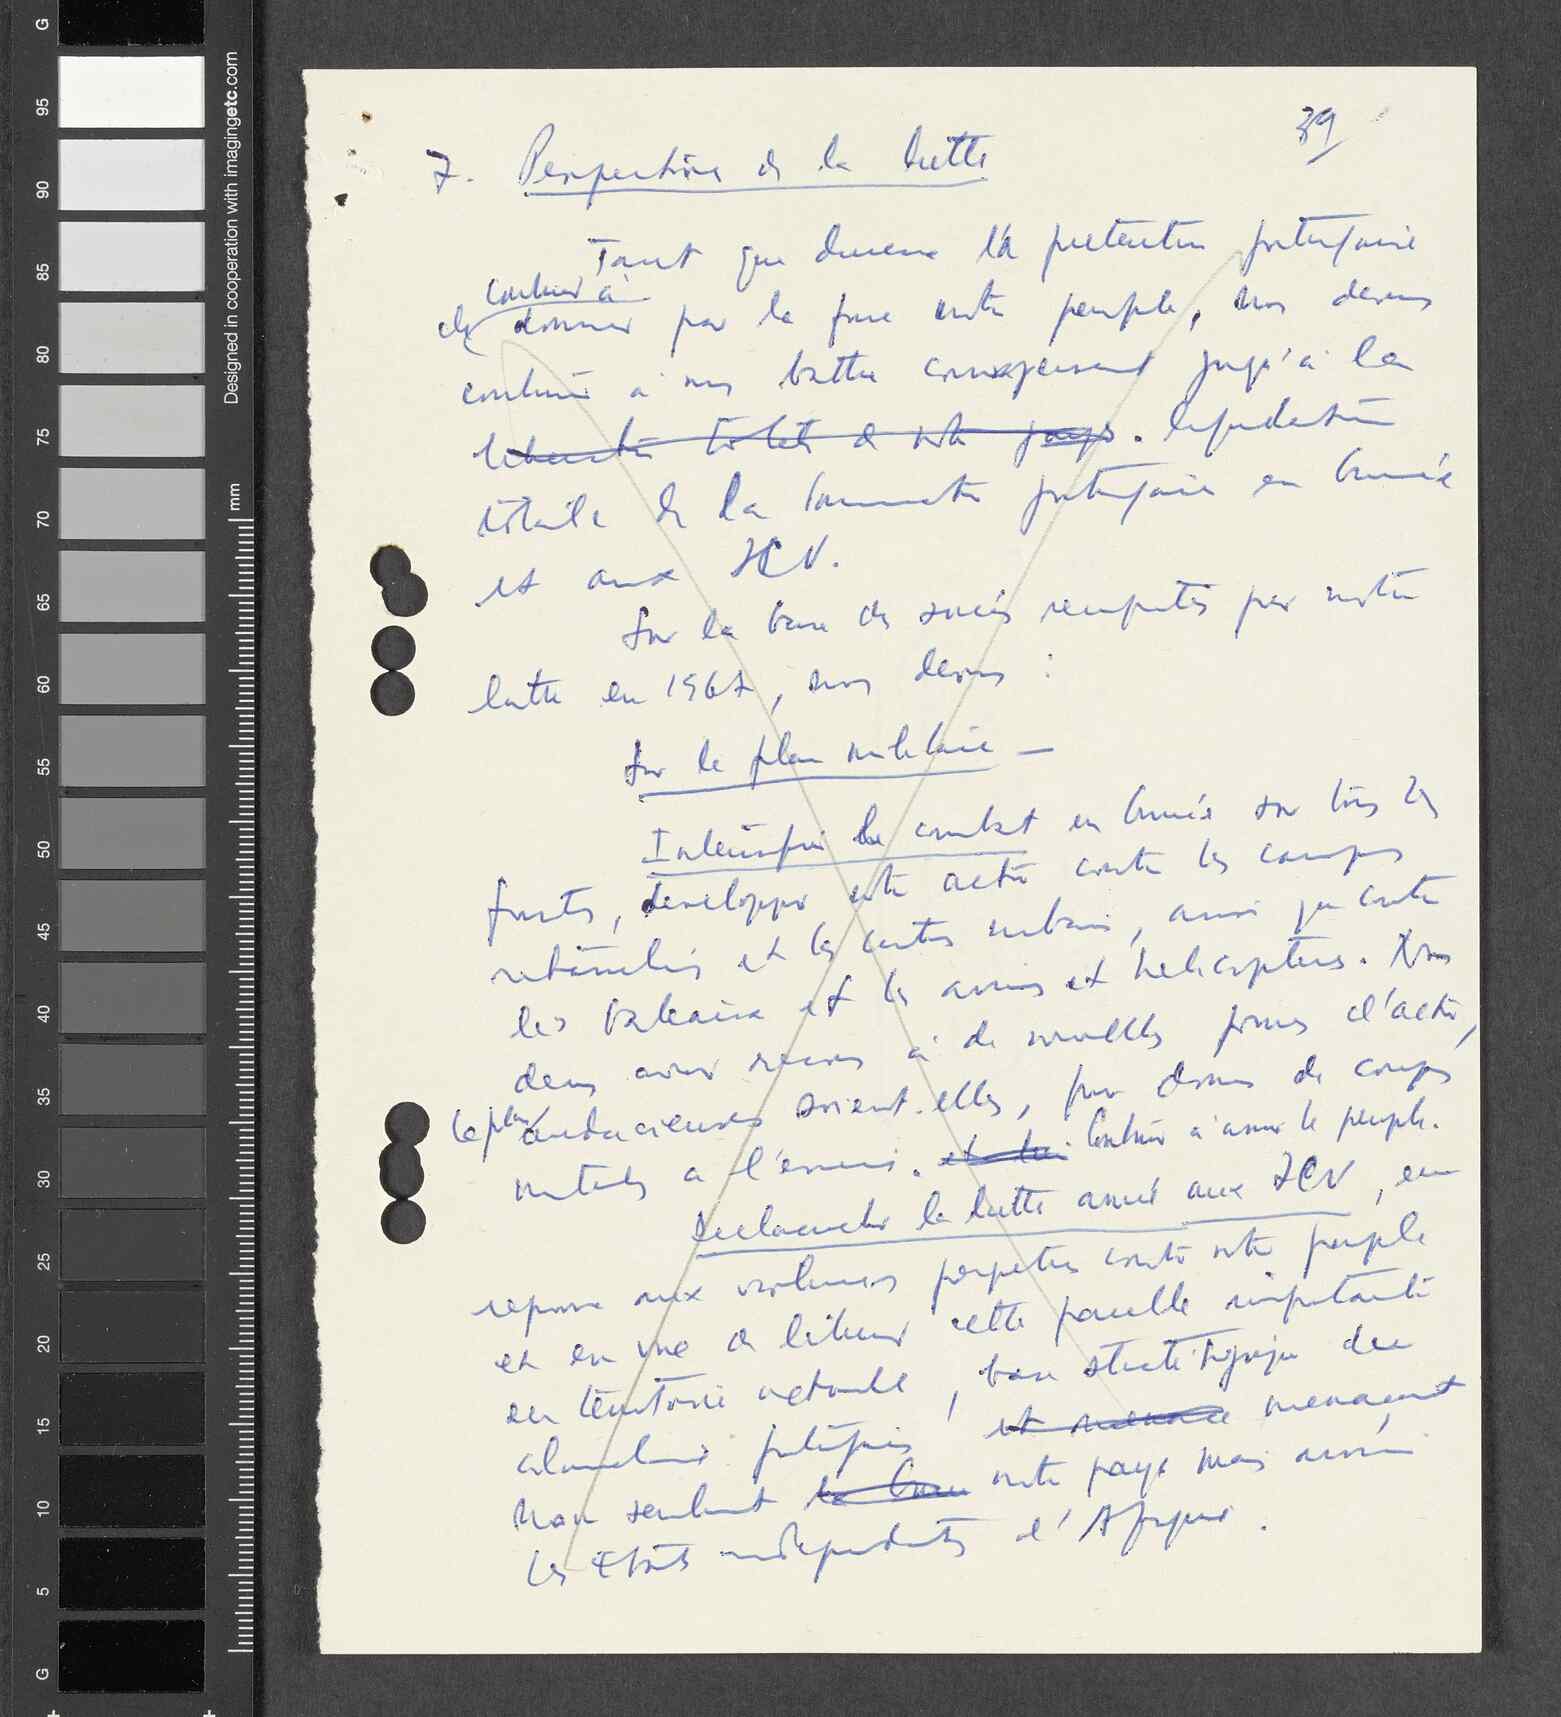 G
95
90
85
80
75
70
65
60
55
50
45
40
35
30
25
20
15
10
5
G
Designed in cooperation with imagingetc.com
mm
39
7. Perspective de la lutte
Tant que durera la prétention portugaise
continuer à
de dominer par la force notre peuple, nous devons
continuer à nous battre courageusement jusqu'à la
libération totale de notre pays. liquidation
totale de la domination portugaise en Guinée
et aux ICV.
Sur la base des succès remportés par notre
lutte en 1967, nous devons :
Sur le plan militaire —
Intensifier le combat en Guinée sur tous les
fronts, développer notre action contre les camps
retranchés et les centres urbains, ainsi que contre
les bateaux et les avions et hélicoptères. Nous
devons avoir recours à de nouvelles formes d'action,
les plus audacieuses soient-elles, pour donner des coups
mortels à l'ennemi. Continuer à armer le peuple.
Déclencher la lutte armée aux ICV, en
réponse aux violences perpétrées contre notre peuple
et en vue de libérer cette parcelle importante
du territoire national, base stratégique des
colonialistes portugais et menace menaçant
non seulement notre pays mais aussi
les Etats indépendants d'Afrique.